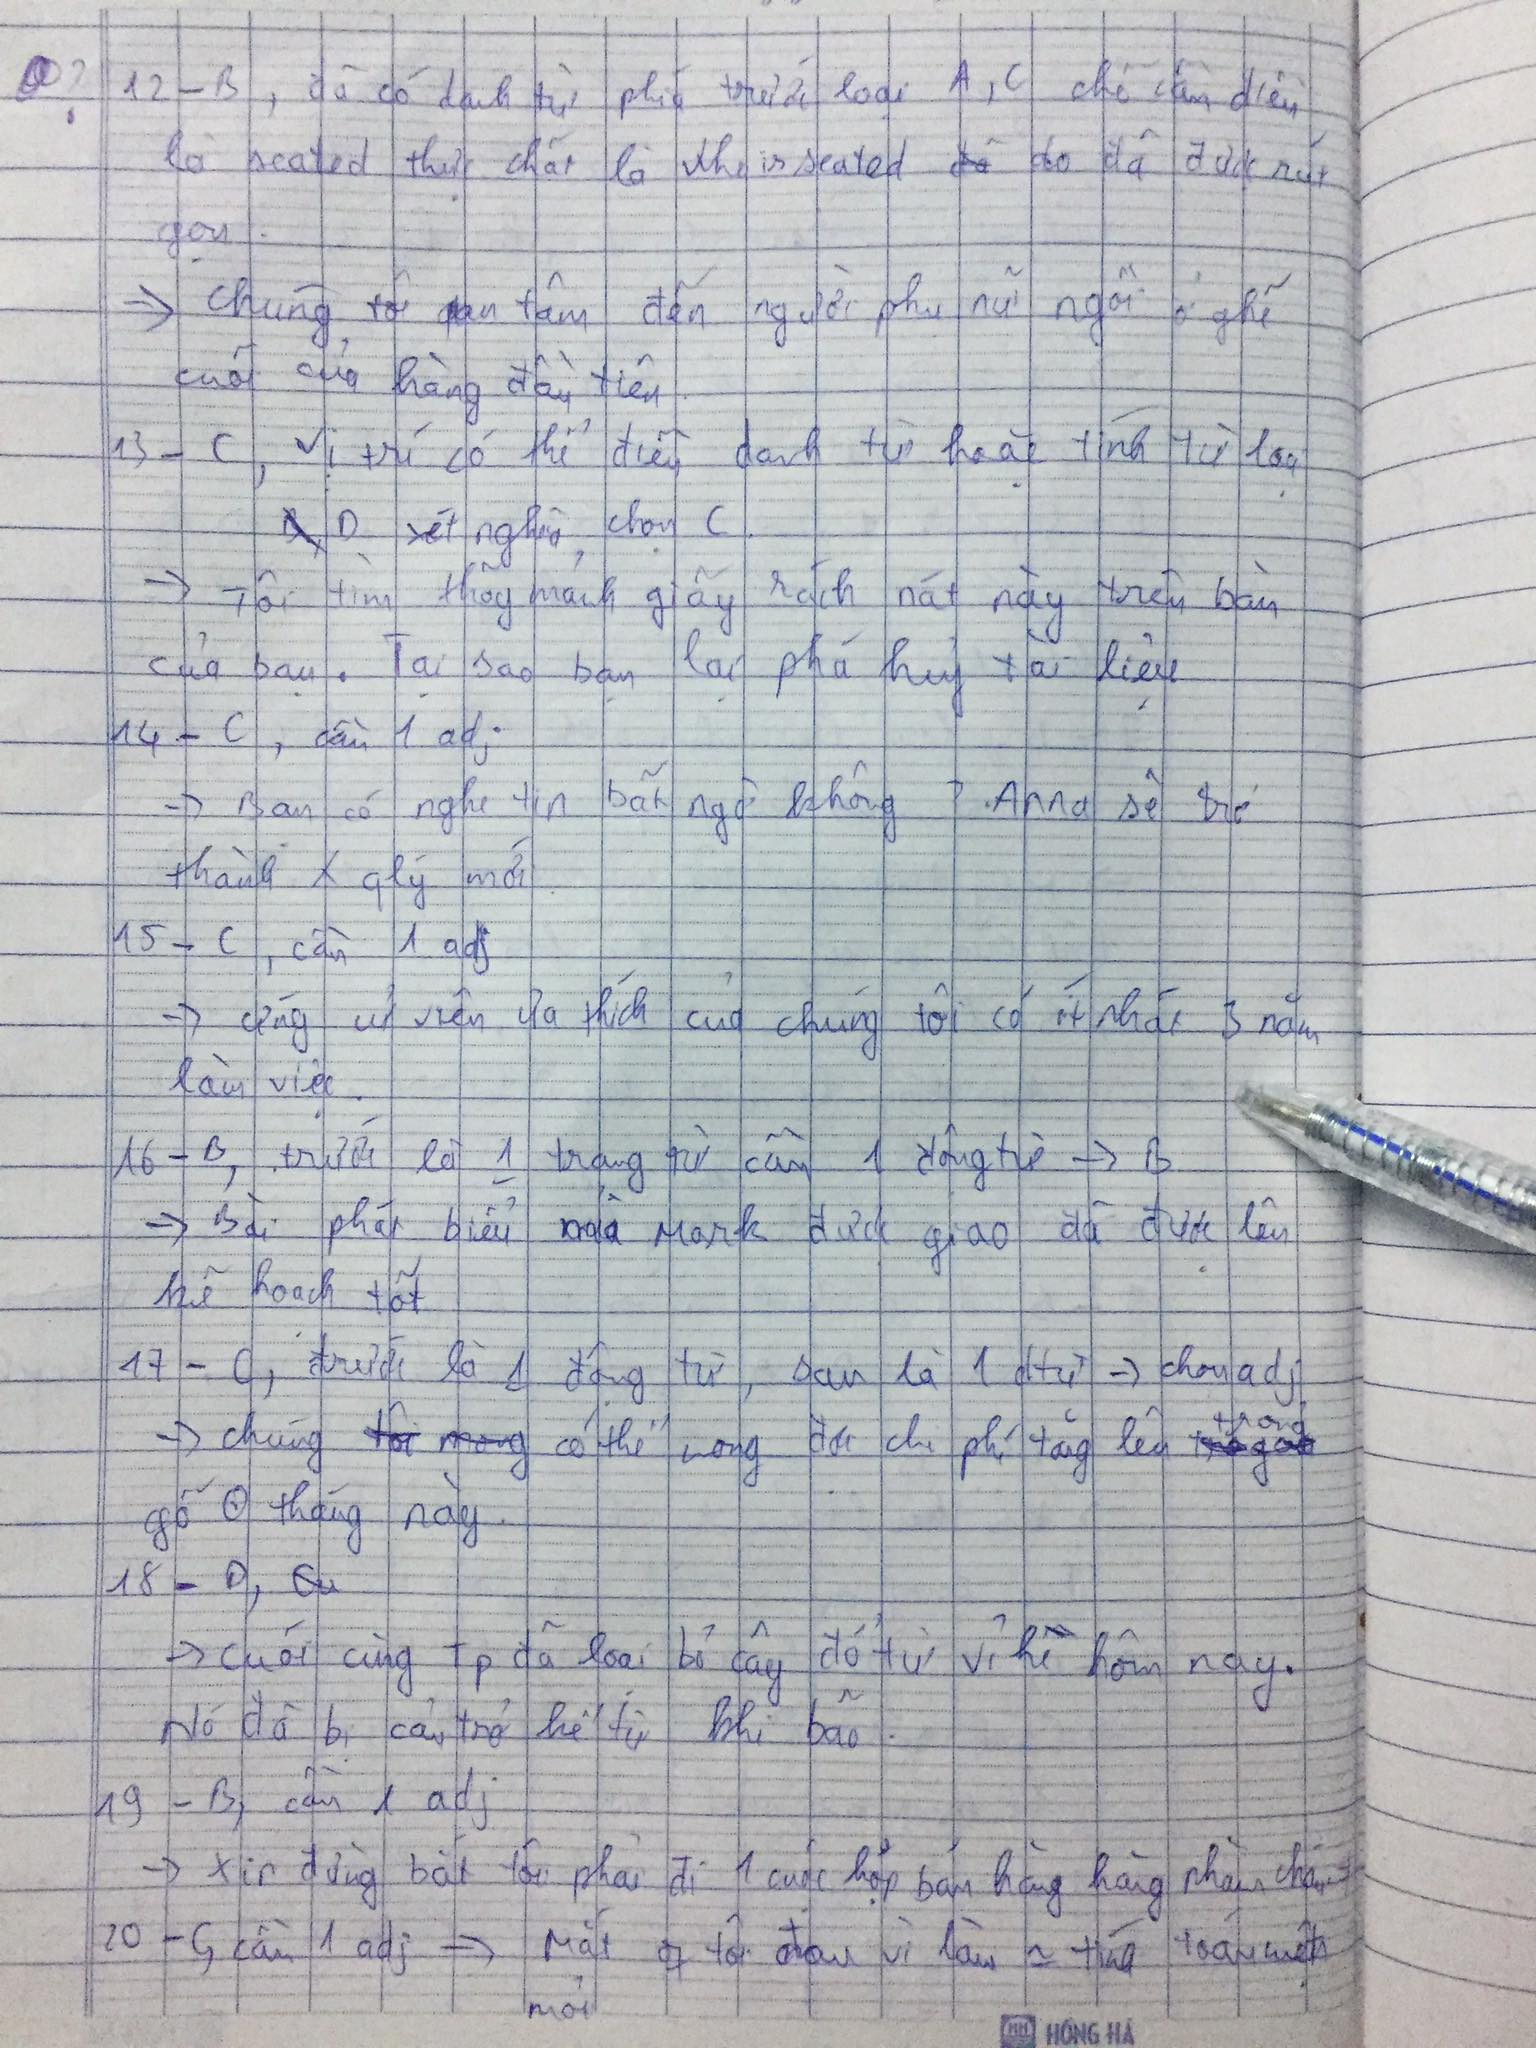 12 - B, đã có danh từ phía trước loại A, C chỉ cần điền
là seated thực chất là who is seated do đã được rút
gọn.
→ Chúng tôi quan tâm đến người phụ nữ ngồi ở ghế
cuối của hàng đầu tiên.
13 - C, Vị trí có thể điền danh từ hoặc tính từ loại
D xét nghĩa, chọn C.
→ Tôi tìm thấy mảnh giấy rách nát này trên bàn
của bạn. Tại sao bạn lại phá huỷ tài liệu
14 - C, cần 1 adj
→ Bạn có nghe tin bất ngờ không? Anna sẽ trở
thành qlý mới
15 - C, cần 1 adj
→ ứng viên ưa thích của chúng tôi có ít nhất 3 năm
làm việc.
16 - B, trước là 1 trạng từ cần 1 động từ → B
→ Bài phát biểu mà Mark được giao đã được lên
kế hoạch tốt
17 - C, trước là 1 động từ, sau là 1 dtừ → chọn adj
→ chúng có thể mong đợi chi phí tăng lên trong
gỗ tháng này.
18 - D,
→ Cuối cùng Tp đã loại bỏ cây đó từ vỉa hè hôm nay.
Nó đã bị cản trở kể từ khi bão.
19 - B, cần 1 adj
→ Xin đừng bắt tôi phải đi 1 cuộc họp bán hàng hàng nhàm chán
20 - C, cần 1 adj → Mắt tôi đau vì làm tính toán
mỏi
HH HỒNG HÀ